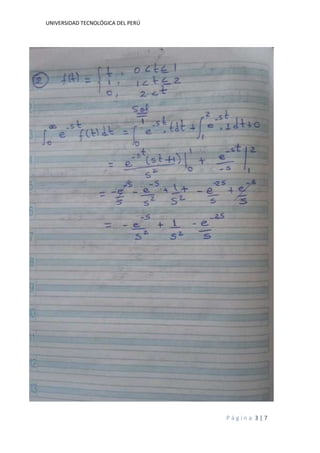 UNIVERSIDAD TECNOLÓGICA DEL PERÚ
② f(t) = { t, 0<t≤1
1, 1<t≤2
0, 2<t
Sol
∫₀^∞ e^{-st} f(t)dt = ∫₀^1 e^{-st}.tdt + ∫₁^2 e^{-st}.1dt+0
= e^{-st}(st+1)/s² |₀^1 + e^{-st}/-s |₁^2
= -e^{-s}/s - e^{-s}/s² + 1/s² + -e^{-2s}/s + e^{-s}/s
= -e^{-s}/s² + 1/s² - e^{-2s}/s
Página 3 | 7